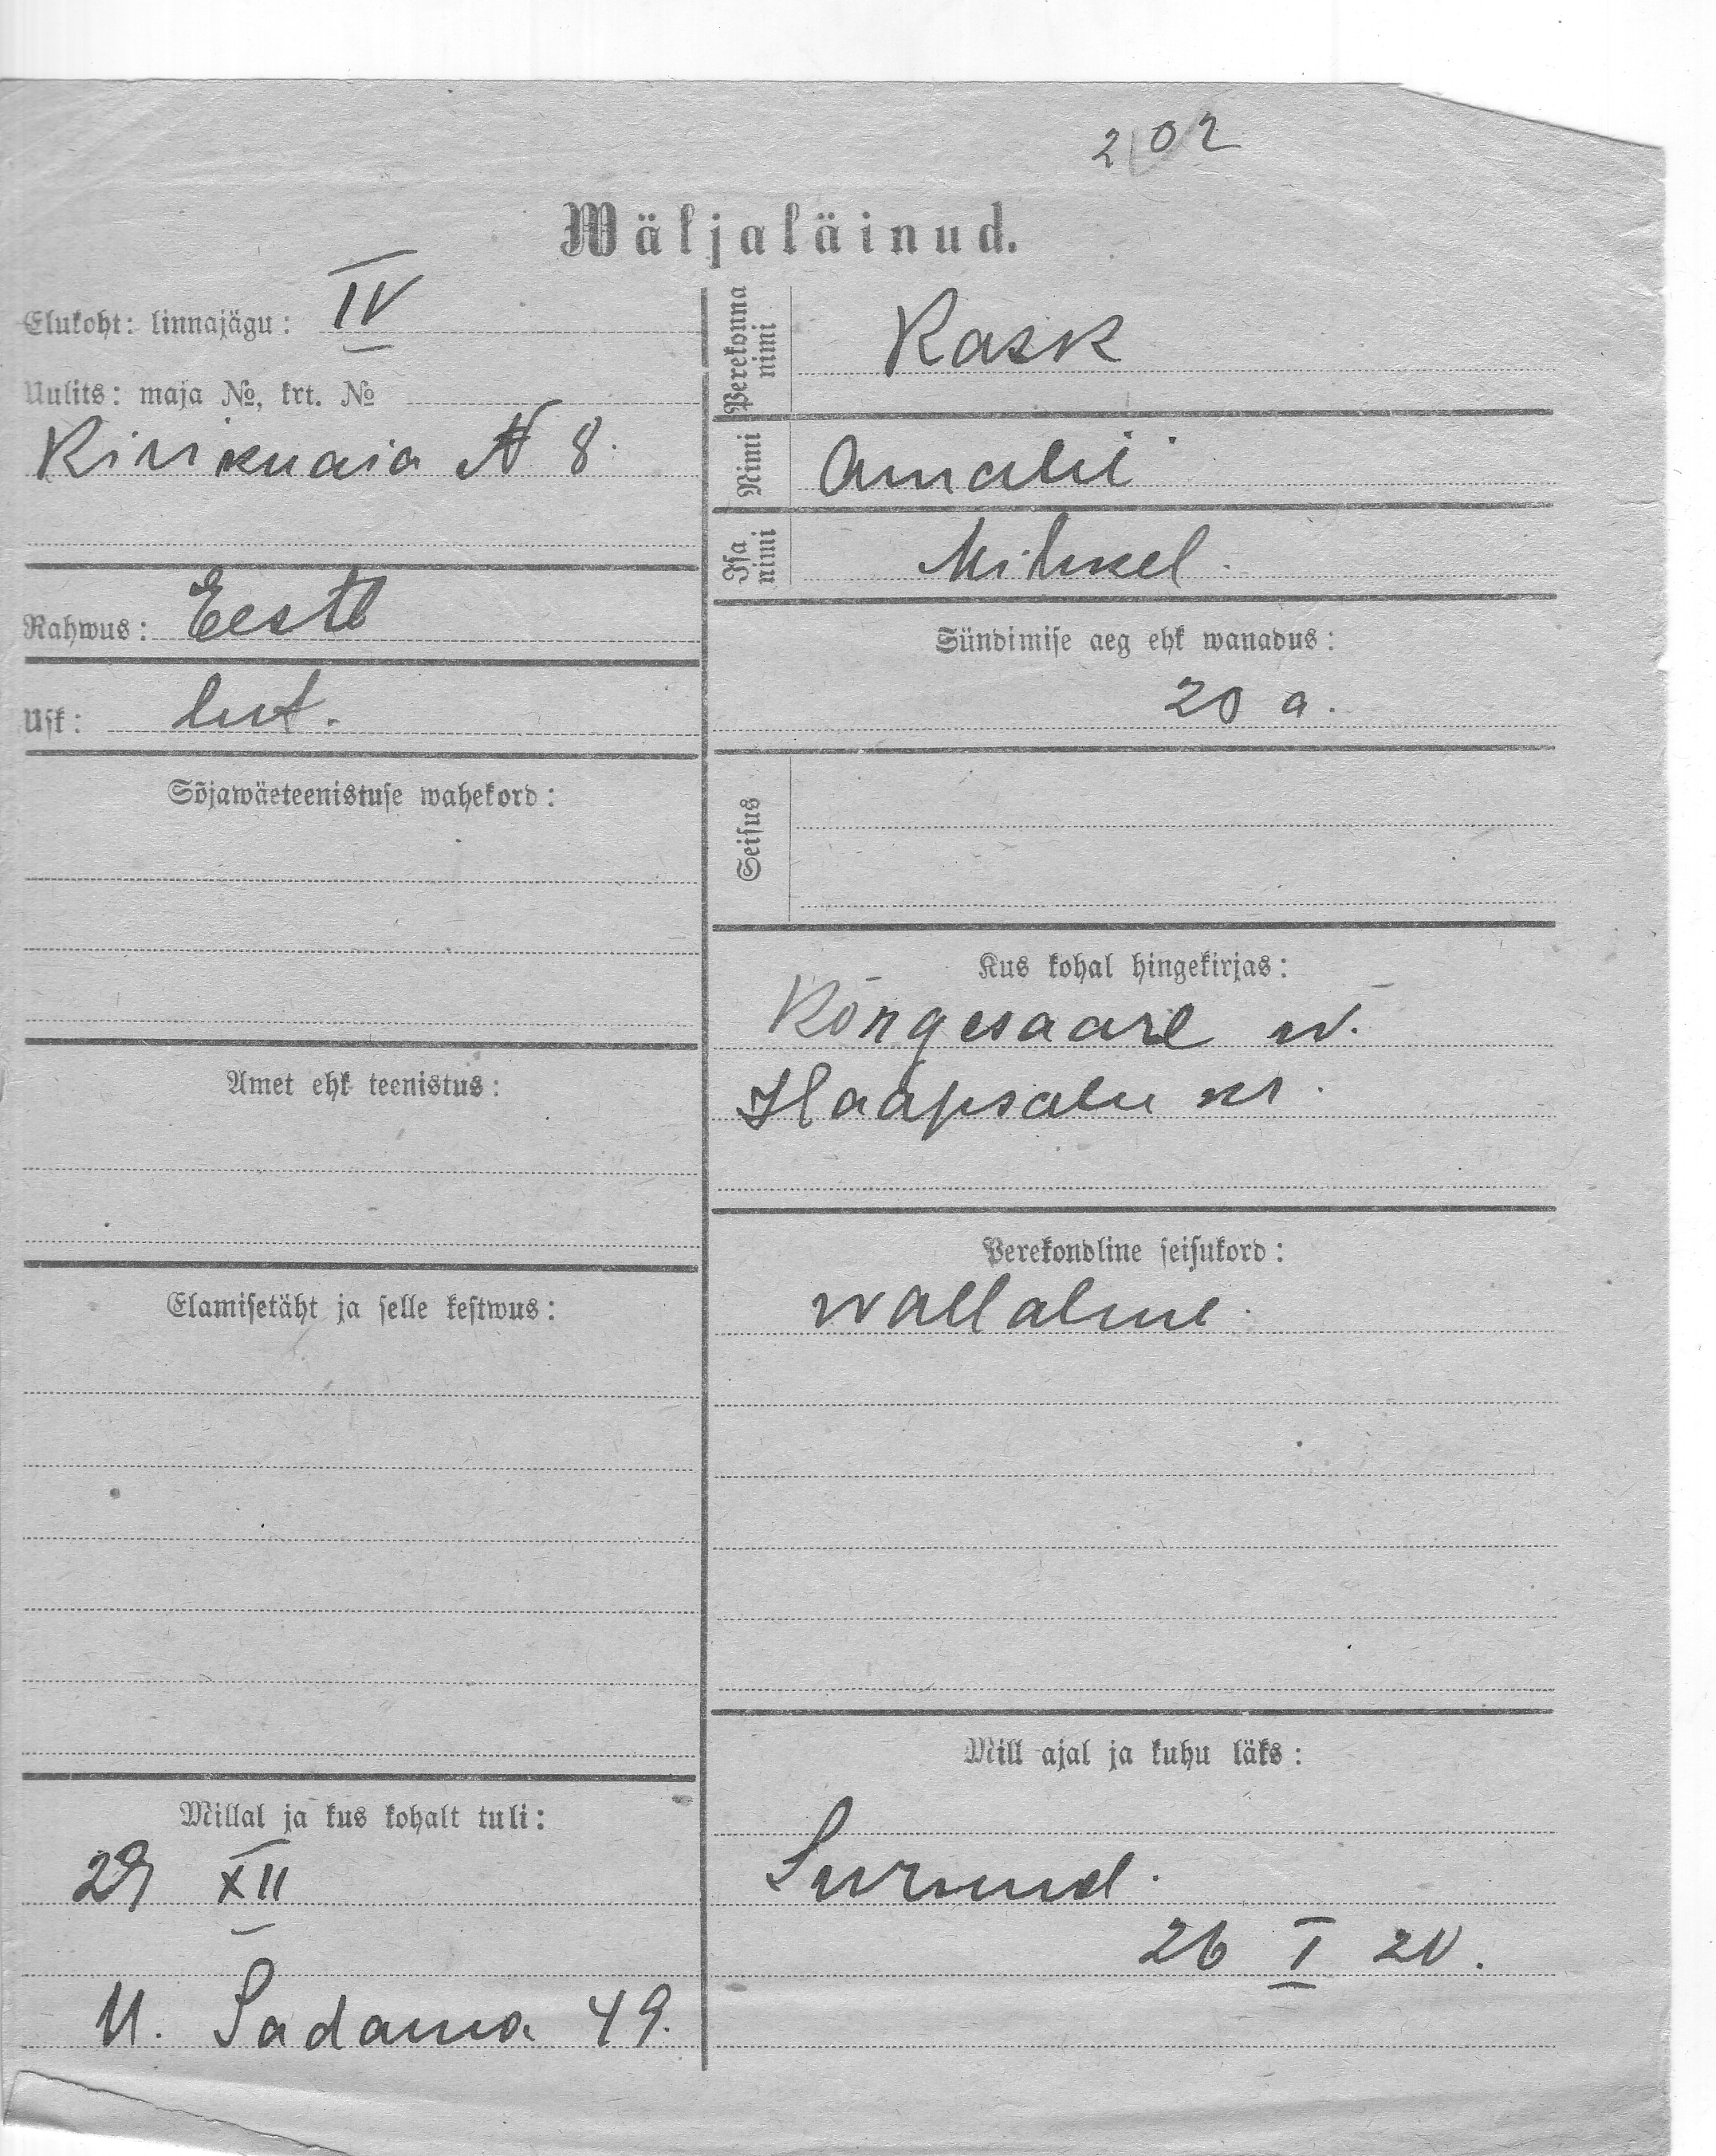 202
Wäljaläinud.
Elukoht: linnajägu: IV
Uulits: maja №, krt. №
Kirikuaia № 8.
Rahwus: Eestl
Usk: lut.
Sõjawäeteenistuse wahekord:
Amet ehk teenistus:
Elamisetäht ja selle kestwus:
Millal ja kus kohalt tuli:
29 XII
U. Sadama 49.
Perekonna nimi Kask
Nimi Amalii
Isa nimi Mihkel.
Sündimise aeg ehk wanadus:
20 a.
Seisus
Kus kohal hingekirjas:
Kõrgesaare w.
Haapsalu kr.
Perekondline seisukord:
wallaline.
Mill ajal ja kuhu läks:
Surnud.
26 I 20.